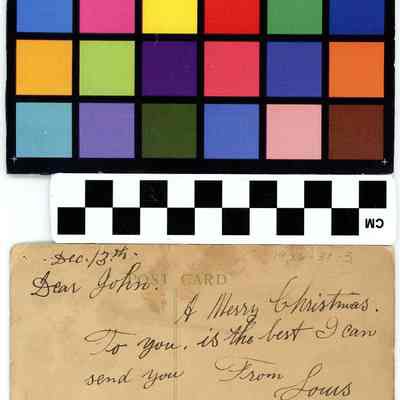 CM
Dec. 13th.
1986-31-3
POST CARD
Dear John.
A Merry Christmas.
To you. is the best I can
send you From
Louis